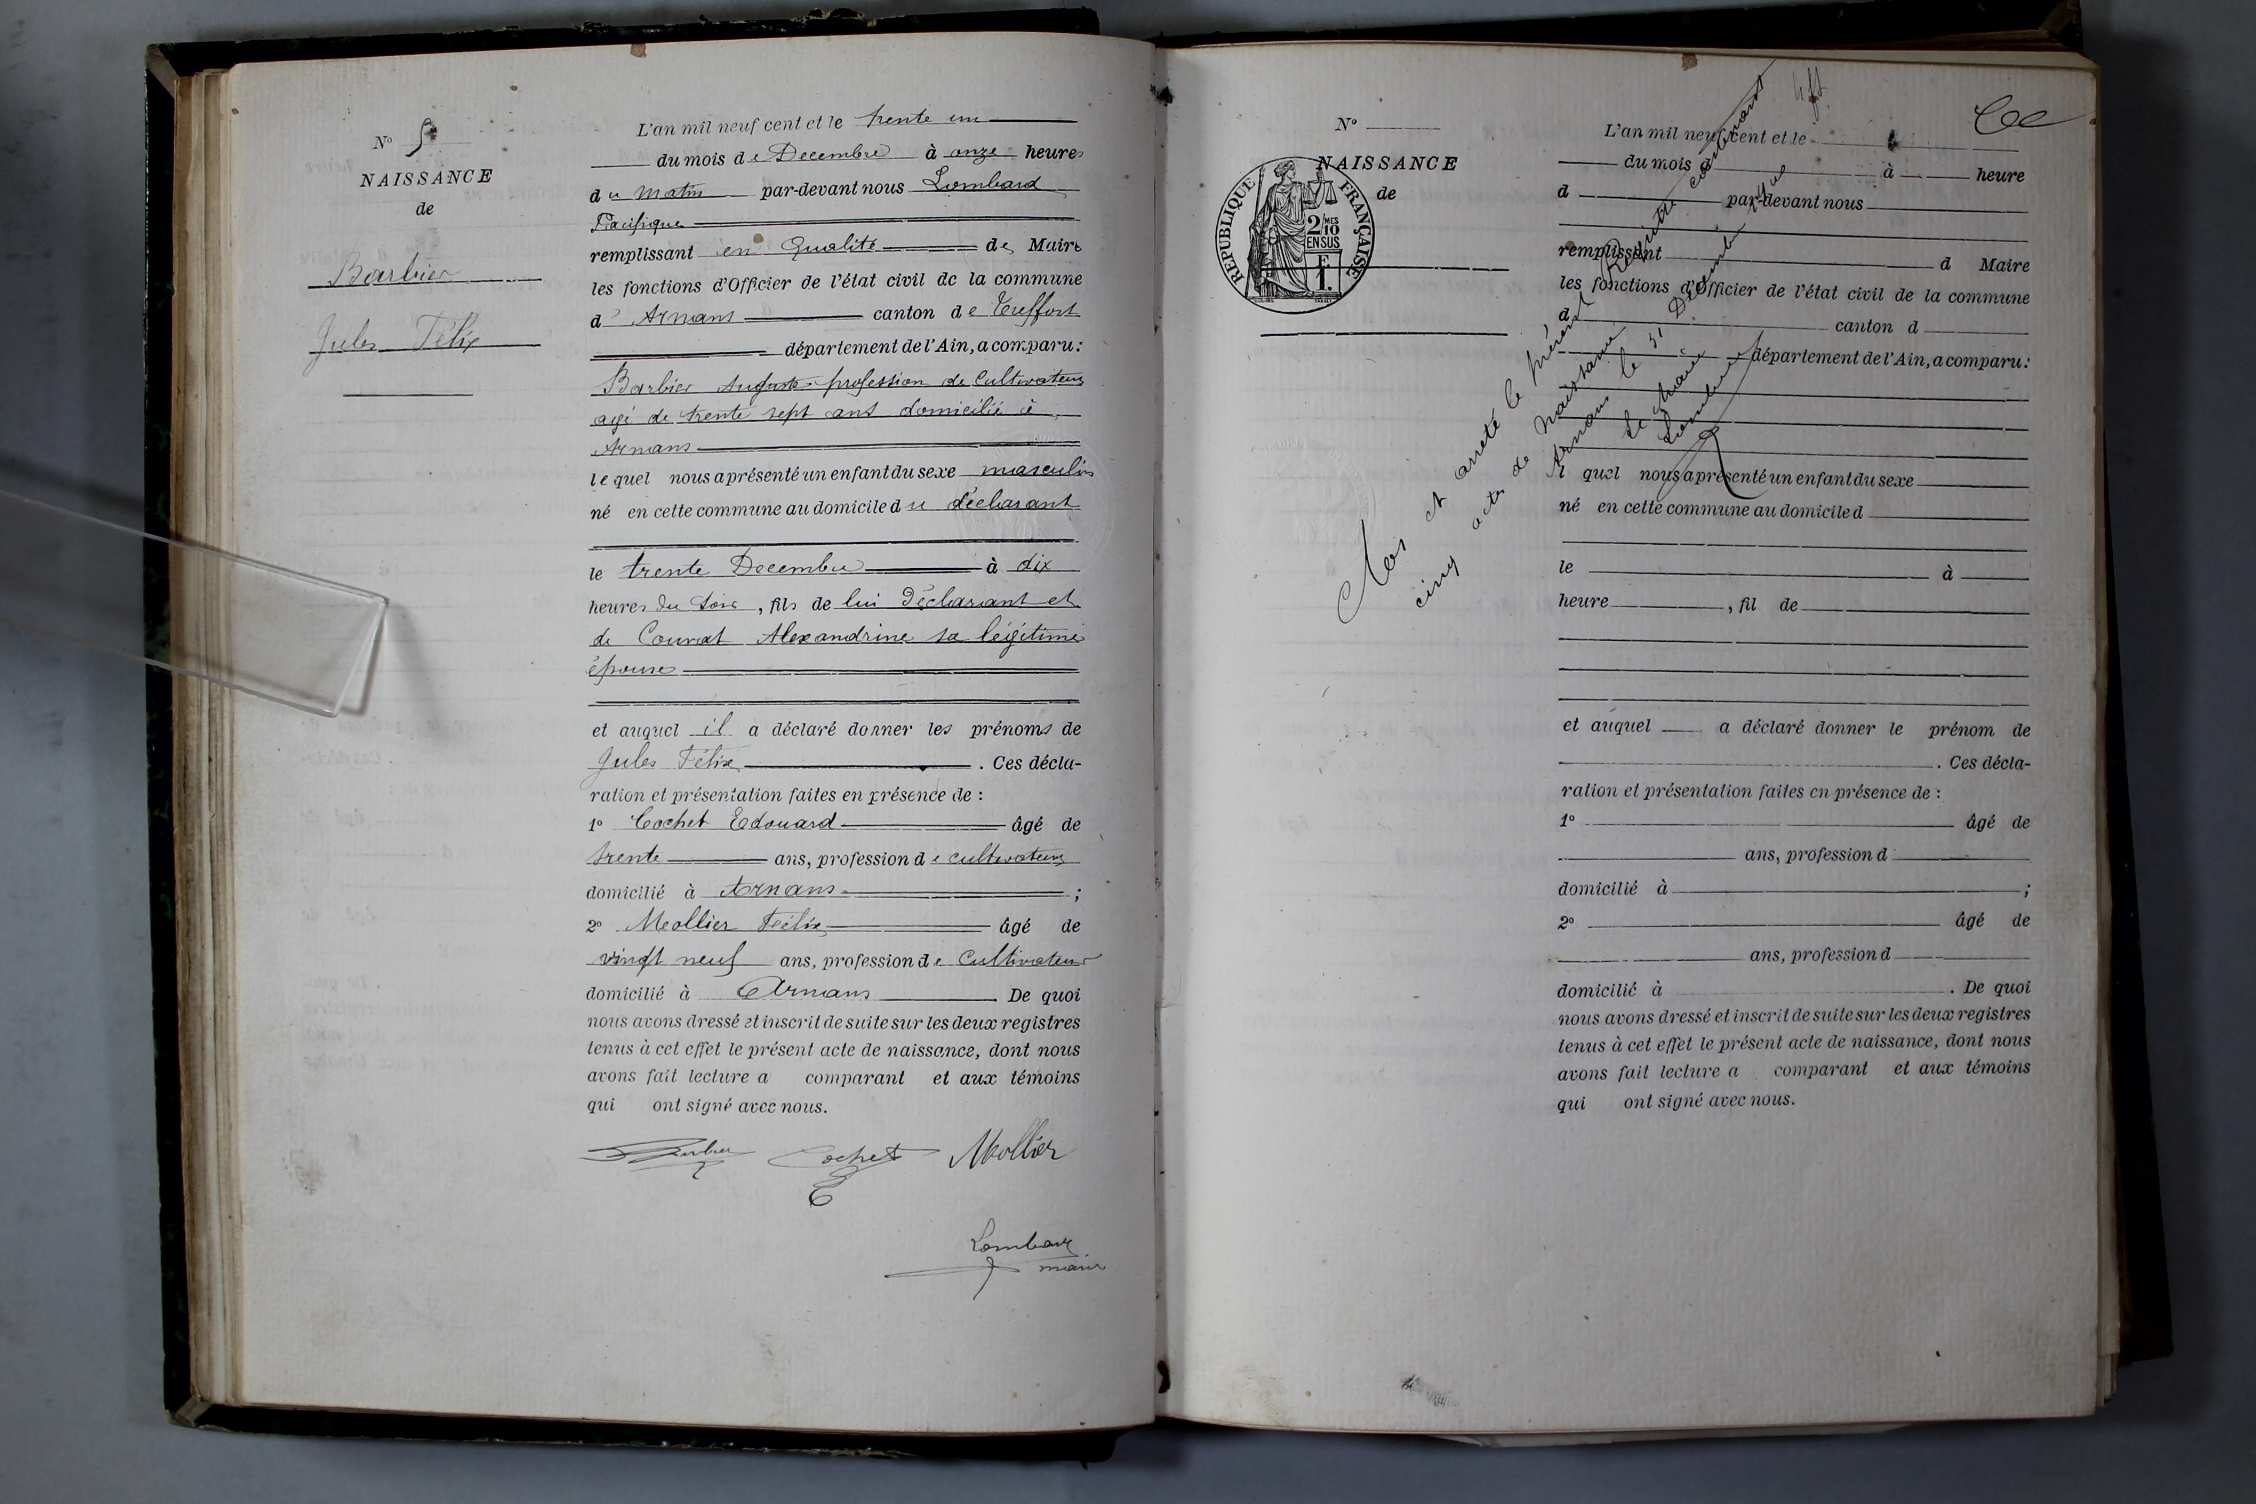 N° 5
NAISSANCE
de
Barbier
Jules Félix
L'an mil neuf cent et le trente un
du mois de Decembre à onze heures
du matin par-devant nous Lombard
Pacifique
remplissant en qualité de Maire
les fonctions d'Officier de l'état civil de la commune
d' Arnans canton de Treffort
département de l'Ain, a comparu :
Barbier Auguste profession de cultivateur
agé de trente sept ans domicilié à
Arnans
lequel nous a présenté un enfant du sexe masculin
né en cette commune au domicile du déclarant
le trente Decembre à dix
heures du soir, fils de lui Déclarant et
de Convat Alexandrine sa légitime
épouse
et auquel il a déclaré donner les prénoms de
Jules Félix. Ces décla-
ration et présentation faites en présence de :
1° Cochet Edouard âgé de
trente ans, profession de cultivateur
domicilié à Arnans ;
2° Mollier Félix âgé de
vingt neuf ans, profession de cultivateur
domicilié à Arnans. De quoi
nous avons dressé et inscrit de suite sur les deux registres
tenus à cet effet le présent acte de naissance, dont nous
avons fait lecture a comparant et aux témoins
qui ont signé avec nous.
Barbier Cochet E Mollier
Lombard
maire
N°
NAISSANCE
de
REPUBLIQUE FRANÇAISE
2 MES
10
EN SUS
F.
1.
L'an mil neuf cent et le
du mois d à heure
d par-devant nous
remplissant d Maire
les fonctions d'Officier de l'état civil de la commune
d canton d
département de l'Ain, a comparu :
l quel nous a présenté un enfant du sexe
né en cette commune au domicile d
le à
heure, fil de
et auquel a déclaré donner le prénom de
. Ces décla-
ration et présentation faites en présence de :
1° âgé de
ans, profession d
domicilié à ;
2° âgé de
ans, profession d
domicilié à . De quoi
nous avons dressé et inscrit de suite sur les deux registres
tenus à cet effet le présent acte de naissance, dont nous
avons fait lecture a comparant et aux témoins
qui ont signé avec nous.
Clos et arreté le présent Registre contenant
cinq actes de naissance
Arnans le 31 Décembre
Le Maire
Lombard